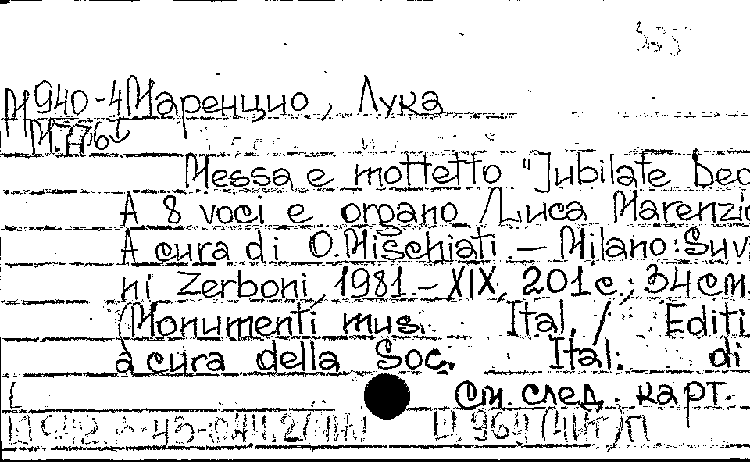 М940-4 Маренцио, Лука
М776
Messa e mottetto "Jubilate Deo
A 8 voci e organo / Luca Marenzio
A cura di O. Mischiati. — Milano: Suvi
ni Zerboni, 1981. — XIX, 201 с.; 34 см.
(Monumenti mus. Ital. / Editi
a cura della Soc. Ital. di
См. след. карт.